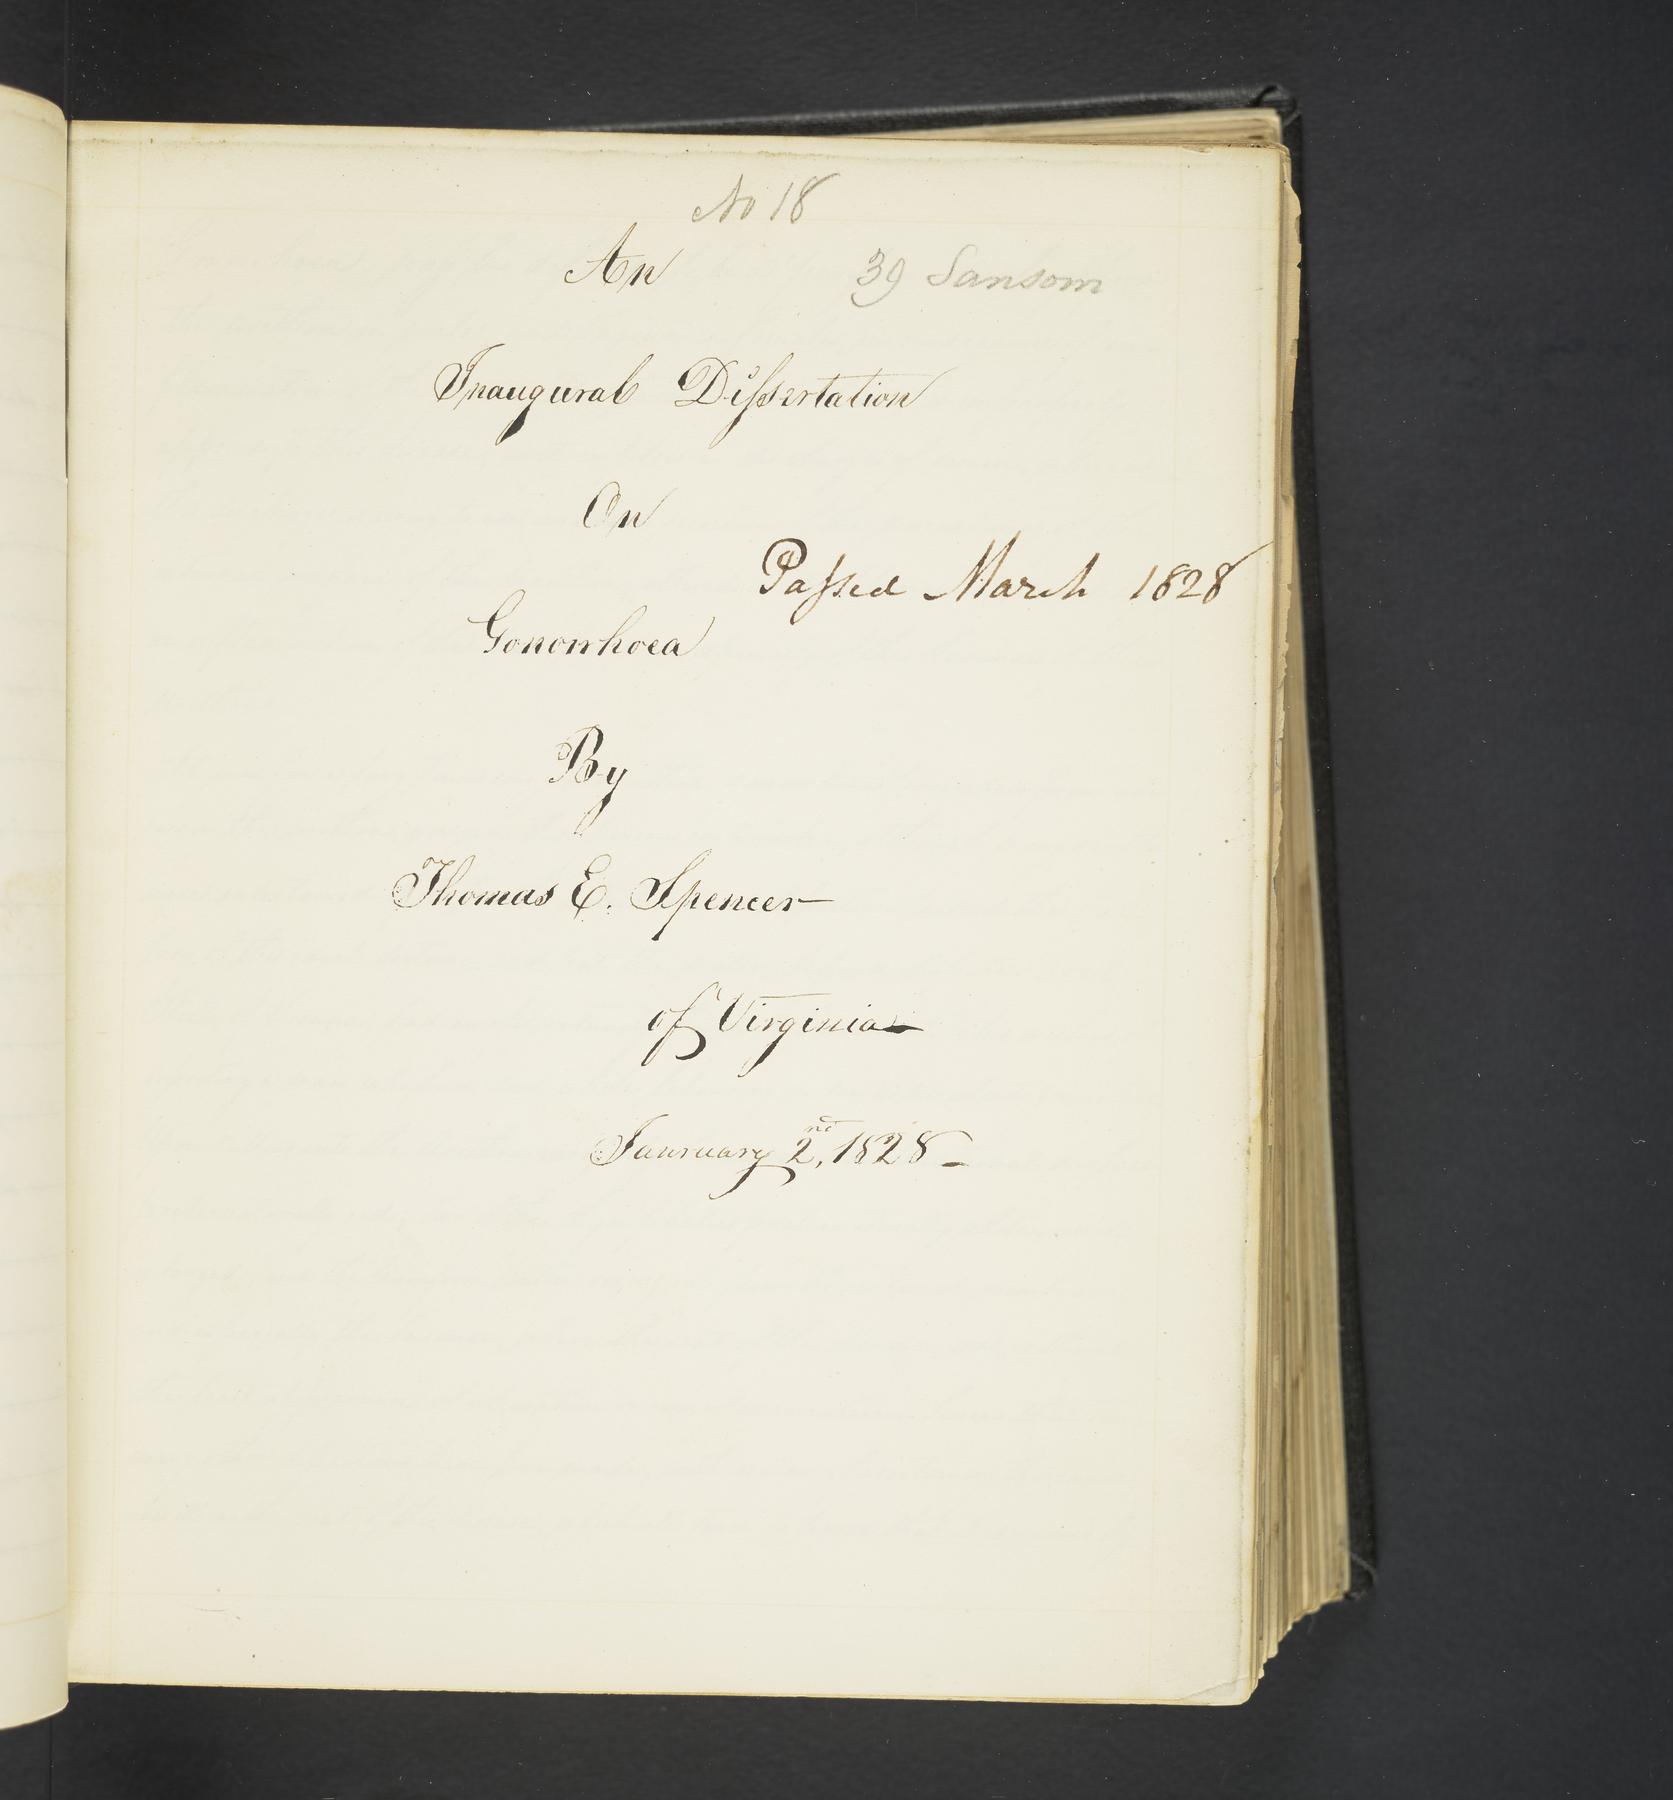 No 18
An
39 Sansom
Inaugural Dissertation
On
Passed March 1828
Gonorrhoea
By
Thomas E. Spencer
of Virginia
January 2nd, 1828